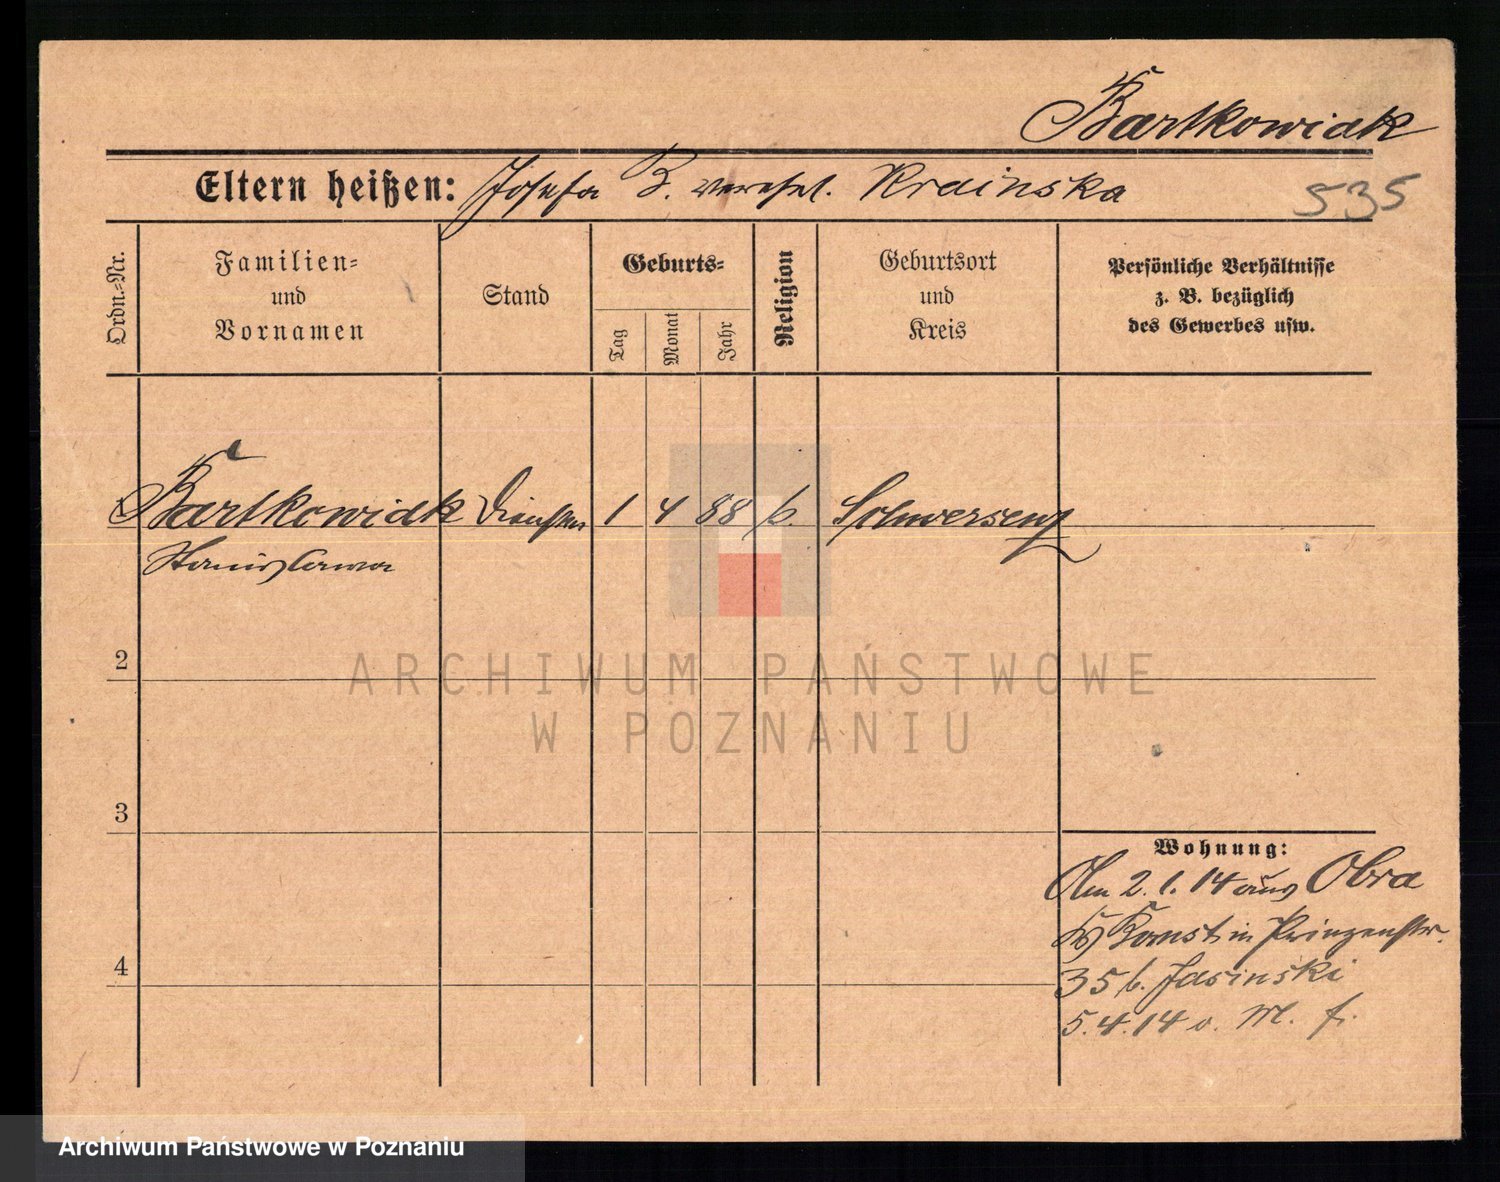 Bartkowiak
Eltern heißen: Josefa B. verehel. Krainska
535
Ordn.-Nr.
Familien-
und
Vornamen
Stand
Geburts-
Tag
Monat
Jahr
Religion
Geburtsort
und
Kreis
Persönliche Verhältnisse
z. B. bezüglich
des Gewerbes usw.
1 Bartkowiak 1 4 88 k. Schwersenz
Stanislawa
2
ARCHIWUM PAŃSTWOWE
W POZNANIU
3
4
Wohnung:
Am 2.1.14 aus Obra
Prinzenstr.
35 b. Jasinski
5.4.14 v. M. f.
Archiwum Państwowe w Poznaniu